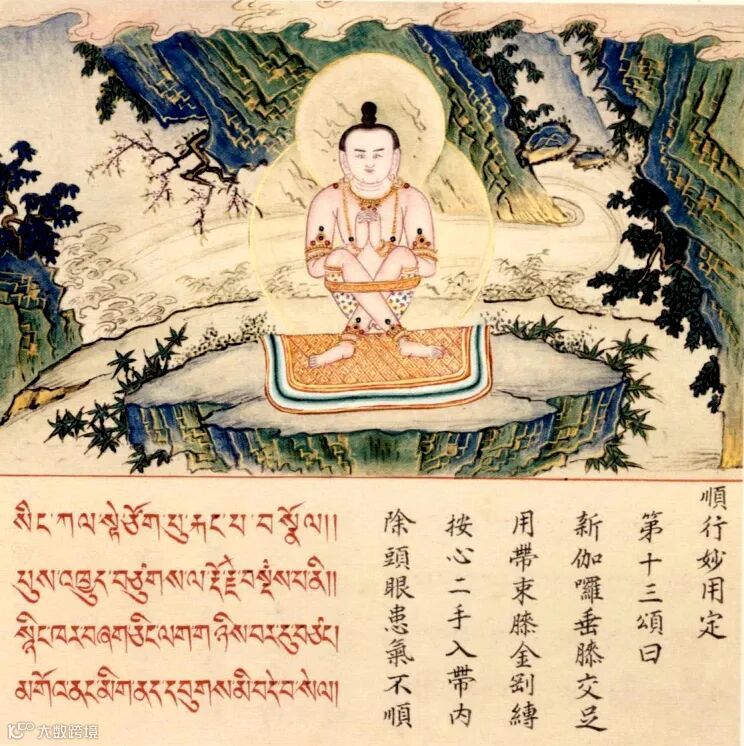 順行妙用定
第十三頌曰
新伽囉垂膝交足
用帶束膝金剛縛
按心二手入帶内
除頭眼患氣不順
སིང་ཀལ་སྟེ་ཙོག་པུ་རྐང་པ་བསྣོལ།།
པུས་འཁྱུད་བཙུགས་ལ་རྡོ་རྗེ་བསྡམས་པ་ནི།།
སྙིང་ཁར་བཞག་ཅིང་ལག་གཉིས་བར་དུ་བཙང།
མགོ་འནང་མིག་ནད་དབུགས་མི་བདེ་བ་སེལ།།
大数跨境